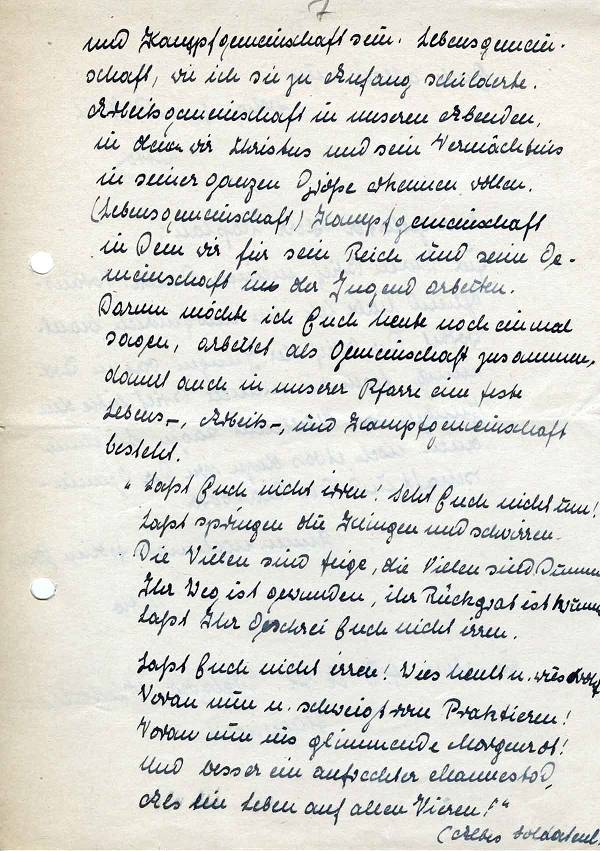 7
und Kampfgemeinschaft sein. Lebensgemein-
schaft, wie ich sie zu Anfang schilderte.
Arbeitsgemeinschaft in unseren Abenden,
in denen wir Christus und sein Vermächtnis
in seiner ganzen Größe erkennen wollen.
(Lebensgemeinschaft) Kampfgemeinschaft
in Dem wir für sein Reich und seine Ge-
meinschaft in der Jugend arbeiten.
Darum möchte ich Euch heute noch einmal
sagen, arbeitet als Gemeinschaft zusammen,
damit auch in unserer Pfarre eine feste
Lebens-, Arbeits-, und Kampfgemeinschaft
besteht.
"Laßt Euch nicht irren! Seht Euch nicht um!
Laßt springen die Klingen und schwirren.
Die Vielen sind feige, die Vielen sind Dumm
Ihr Weg ist gewunden, ihr Rückgrat ist
Laßt Ihr Geschrei Euch nicht irren.
Laßt Euch nicht irren! Wies heult u. wies
Voran nun u. schweigt vom Praktieren!
Voran nun ins glimmende Morgenrot!
Und besser ein aufrechter Mannestod,
Als ein Leben auf allen Vieren!"
(Altes Soldatenl.